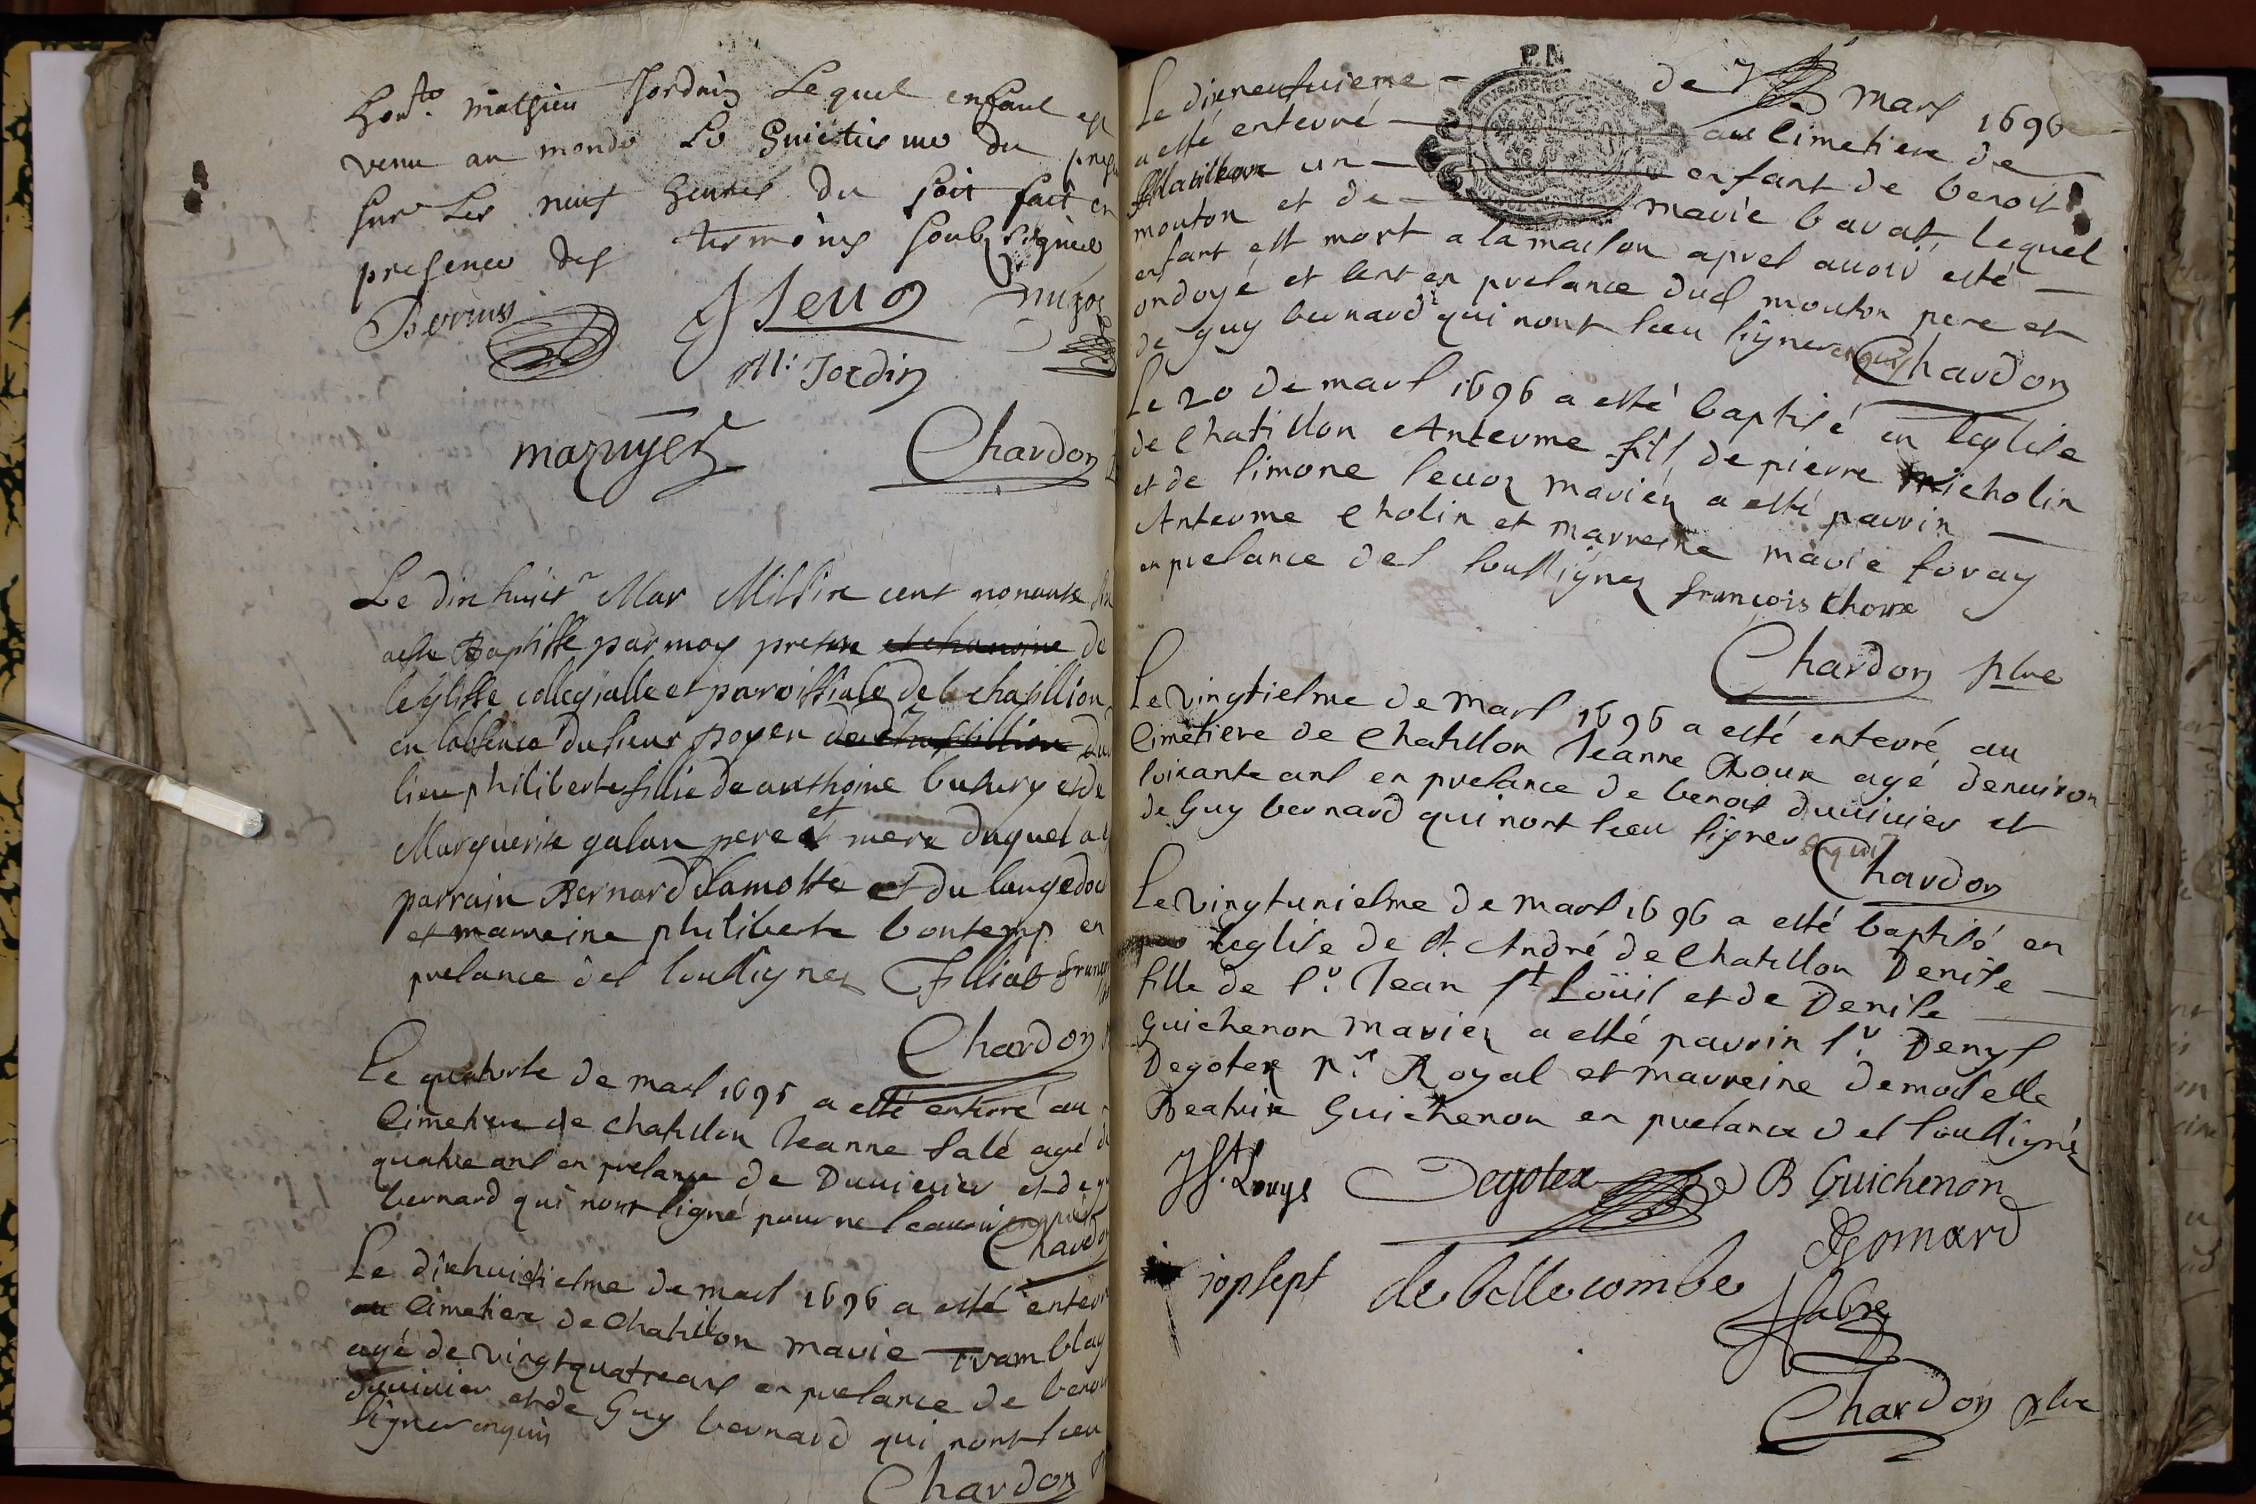 hon.te mathieu Jordain Lequel enfant est
venu au monde Le huictiesme du
sur Les neuf heures du soir fait en
presence des tesmoins soubz signés
M: Jordin
mazuyer
Chardon
Le dix huict Mar Mil six cent nonante
a este Baptisse par moy prestre et chanoine de
leglisse collegialle et paroissiale de chatillion
en labsence du sieur doyen de chastillion dud
lieu philiberte fillie de anthoine butury et de
Marguerite galan pere et mere duquel a
parrain Bernard lamotte et du langedoc
et marreine philiberte bontemp en
presance des soussignez
Chardon
Le quatorse de mars 1696 a esté enterré au
cimetiere de chatillon Jeanne salé agé
quatre ans en presance de Duuiuier et de
bernard qui nont signé pour ne scauoir enquis
Chardon
Le dixhuitiesme de mars 1696 a esté enterré
au cimetiere de Chatillon marie tramblay
agé de vingt quatre ans en presance de benoit
duuiuier et de Guy bernard qui nont sceu
signer enquis
Chardon
Le dixneufuieme de mars 1696
a esté enterré au cimetiere de
Chatillon un enfant de benoit
mouton et de marie bavat, lequel
enfant est mort a la maison apres auoir esté
ondoyé et sent en presance dud mouton pere et
de guy bernard qui nont sceu signer enquis
Chardon
Le 20 de mars 1696 a esté baptisé en leglise
de Chatillon Anteume fils de pierre micholin
et de simone leuoz mariéz a esté parrin
Anteume Cholin et marreine marie foray
en presance des soussignez francois thoux
Chardon ptre
Le vingtiesme de mars 1696 a esté enterré au
Cimetiere de Chatillon Jeanne Roux agé denuiron
soixante ans en presance de benoit duuiuier et
de Guy bernard qui nont sceu signer enquis
Chardon
Le vingtuniesme de mars 1696 a esté baptisé en
leglise de st. André de Chatillon Denise
fille de sr. Jean st Loüis et de Denise
Guichenon mariéz a esté parrin sr. Denys
Degotex nre. Royal et marreine demoiselle
Beatrix Guichenon en presance des soussignéz
J St. Louys Degotex B Guichenon
Gomard
jopsept de bellecombe
fabre
Chardon ptre